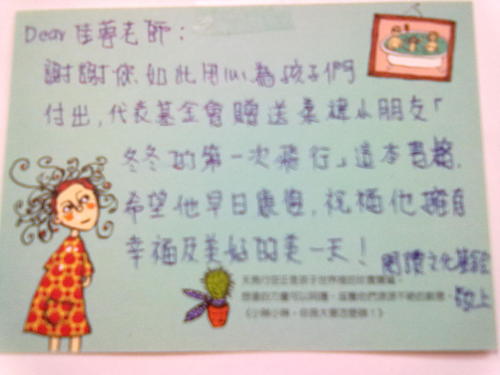 Dear 佳蓉老師：
謝謝你如此用心為孩子們
付出，代表基金會贈送柔禕小朋友「
冬冬的第一次飛行」這本書籍，
希望他早日康復，祝福他擁有
幸福及美好的美一天！
閱讀文化基金會
敬上
《小琳小琳，你長大要怎麼辦！》